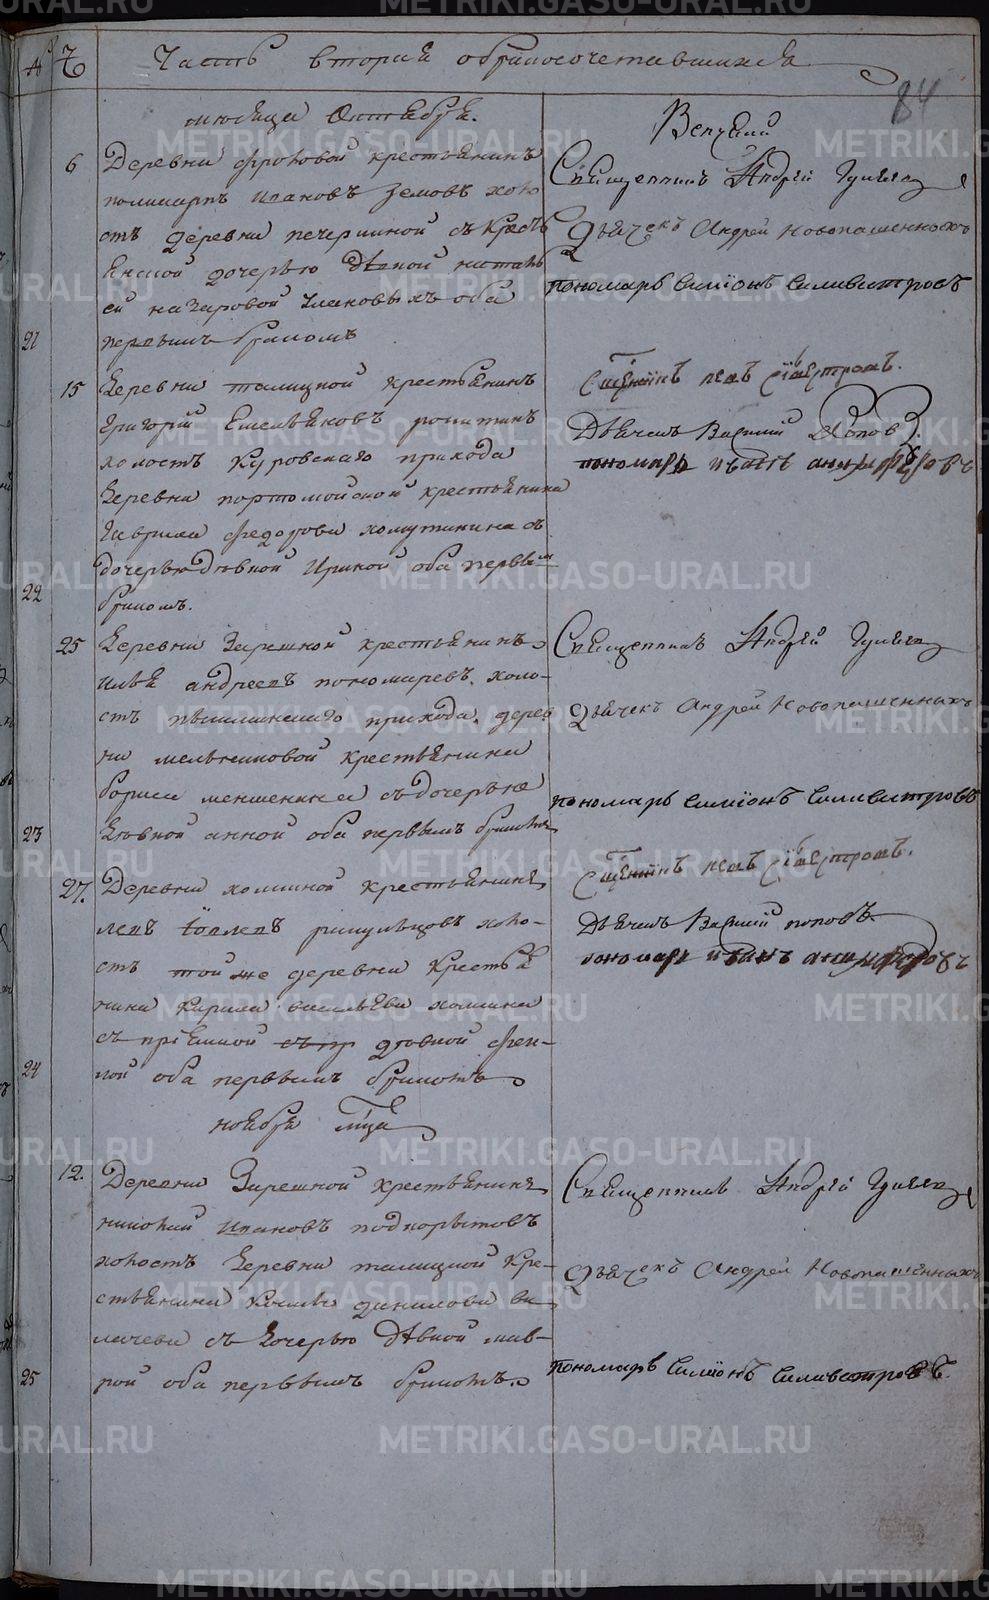 № Ч
Часть вторая обракосочетавшихся
84
месяца Октября.
Венчали
6
Деревни фроловой крестьянинъ
поликарпъ Ивановъ Земовъ холо
стъ деревни печеркиной съ крестья
енской дочерью девкой наталь
ей назаровой оба
первымъ бракомъ
21
Священникъ Андрей Гуляевъ
Дьячекъ Андрей Новопашенныхъ
пономарь Симïонъ Силивестровъ
15
Деревни талицкой крестьянинъ
Григорий Емельяновъ
холостъ Куровскаго прихода
Деревни портомойской крестьянина
Гаврила Федорова хомутинина съ
дочерью девкой Ириной оба первым
бракомъ.
22
Сщенникъ левъ
Дьячекъ Василий Поповъ.
пономарь иванъ
25
Деревни Заречной крестьянинъ
Илья андреевъ пономаревъ. холо-
стъ пышминскаго прихода. дерев
ни мельниковой крестьянина
бориса меншенина съ дочерью
Девкой анной оба первымъ бракомъ
23
Священникъ Андрей Гуляевъ
Дьячекъ Андрей Новопашенныхъ
пономарь Симïонъ Силивестровъ
27.
Деревни холкиной крестьянинъ
левъ Iовлевъ холо-
стъ той же деревни крестья
нина карпа васильева холкина
съ прïемной съ пр девкой фек-
лой оба первымъ бракомъ
24
Сщенникъ левъ
Дьячекъ Василий поповъ.
пономарь иванъ
ноября мца
12.
Деревни Заречной крестьянинъ
николай Ивановъ подкорытовъ
холостъ Деревни талицкой кре-
стьянина данилова
съ Дочерью девкой мав-
рой оба первымъ бракомъ.
25
Священникъ Андрей Гуляевъ
Дьячекъ Андрей Новопашенныхъ
пономарь Симïонъ Силивестровъ.
METRIKI.GASO-URAL.RU